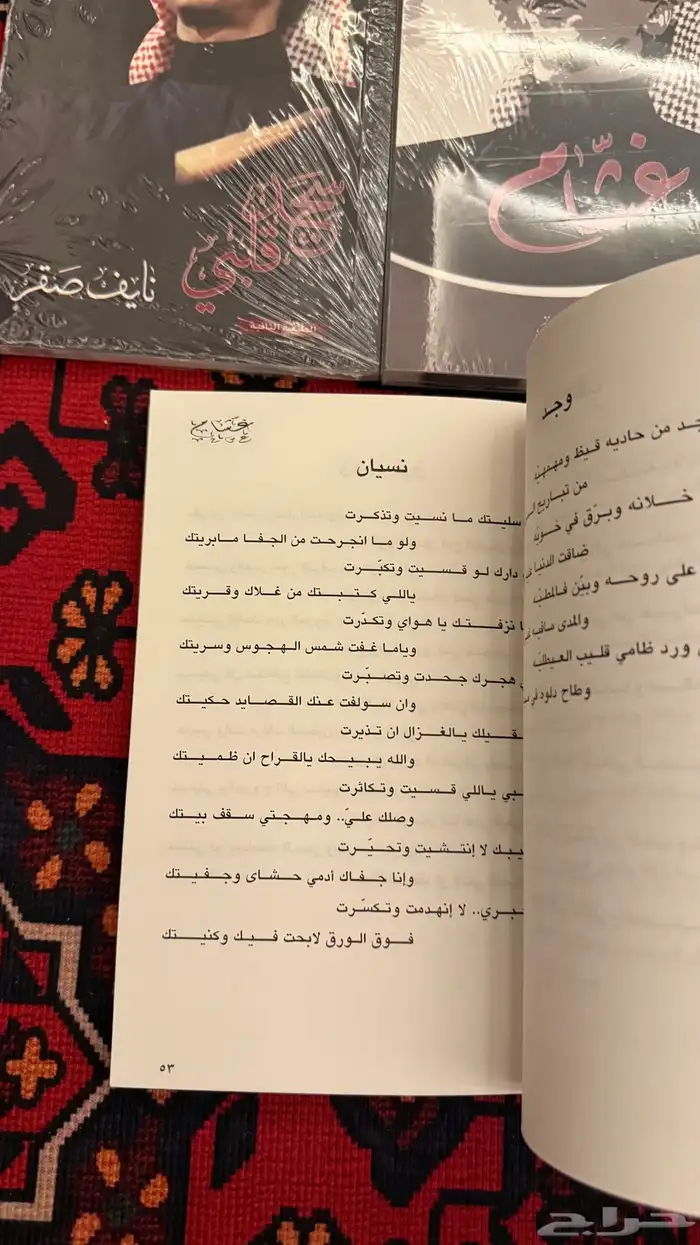 سجة قلبي
نايف صقر
الطبعة الثانية
غثام
وجد
من حاديه قيظ ومهمهيه
من تباريح
خلانه وبرّق في خويه
ضاقت الدنيا
على روحه وبيّن فالمطيه
والمدى
ورد ظامي قليب العيطليه
وطاح دلوه في
غثام
نسيان
سليتك ما نسيت وتذكرت
ولو ما انجرحت من الجفا مابريتك
دارك لو قسيت وتكبّرت
ياللي كتبتك من غلاك وقريتك
نزفتك يا هواي وتكدّرت
وياما غفت شمس الهجوس وسريتك
هجرك جحدت وتصبّرت
وان سولفت عنك القصايد حكيتك
يالغزال ان تذيرت
والله يبيحك يالقراح ان ظميتك
ياللي قسيت وتكاثرت
وصلك عليّ.. ومهجتي سقف بيتك
لا إنتشيت وتحيّرت
وإنا جفاك أدمي حشاى وجفيتك
لا إنهدمت وتكسّرت
فوق الورق لابحت فيك وكنيتك
٥٣
حراج